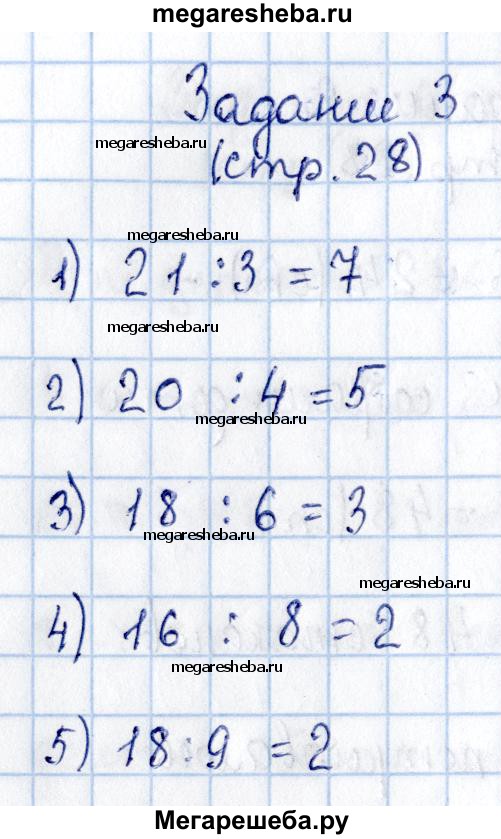 megaresheba.ru
Задание 3
megaresheba.ru
(стр. 28)
megaresheba.ru
1) 21 : 3 = 7
megaresheba.ru
2) 20 : 4 = 5
megaresheba.ru
3) 18 : 6 = 3
megaresheba.ru
megaresheba.ru
4) 16 : 8 = 2
megaresheba.ru
5) 18 : 9 = 2
Мегарешеба.ру